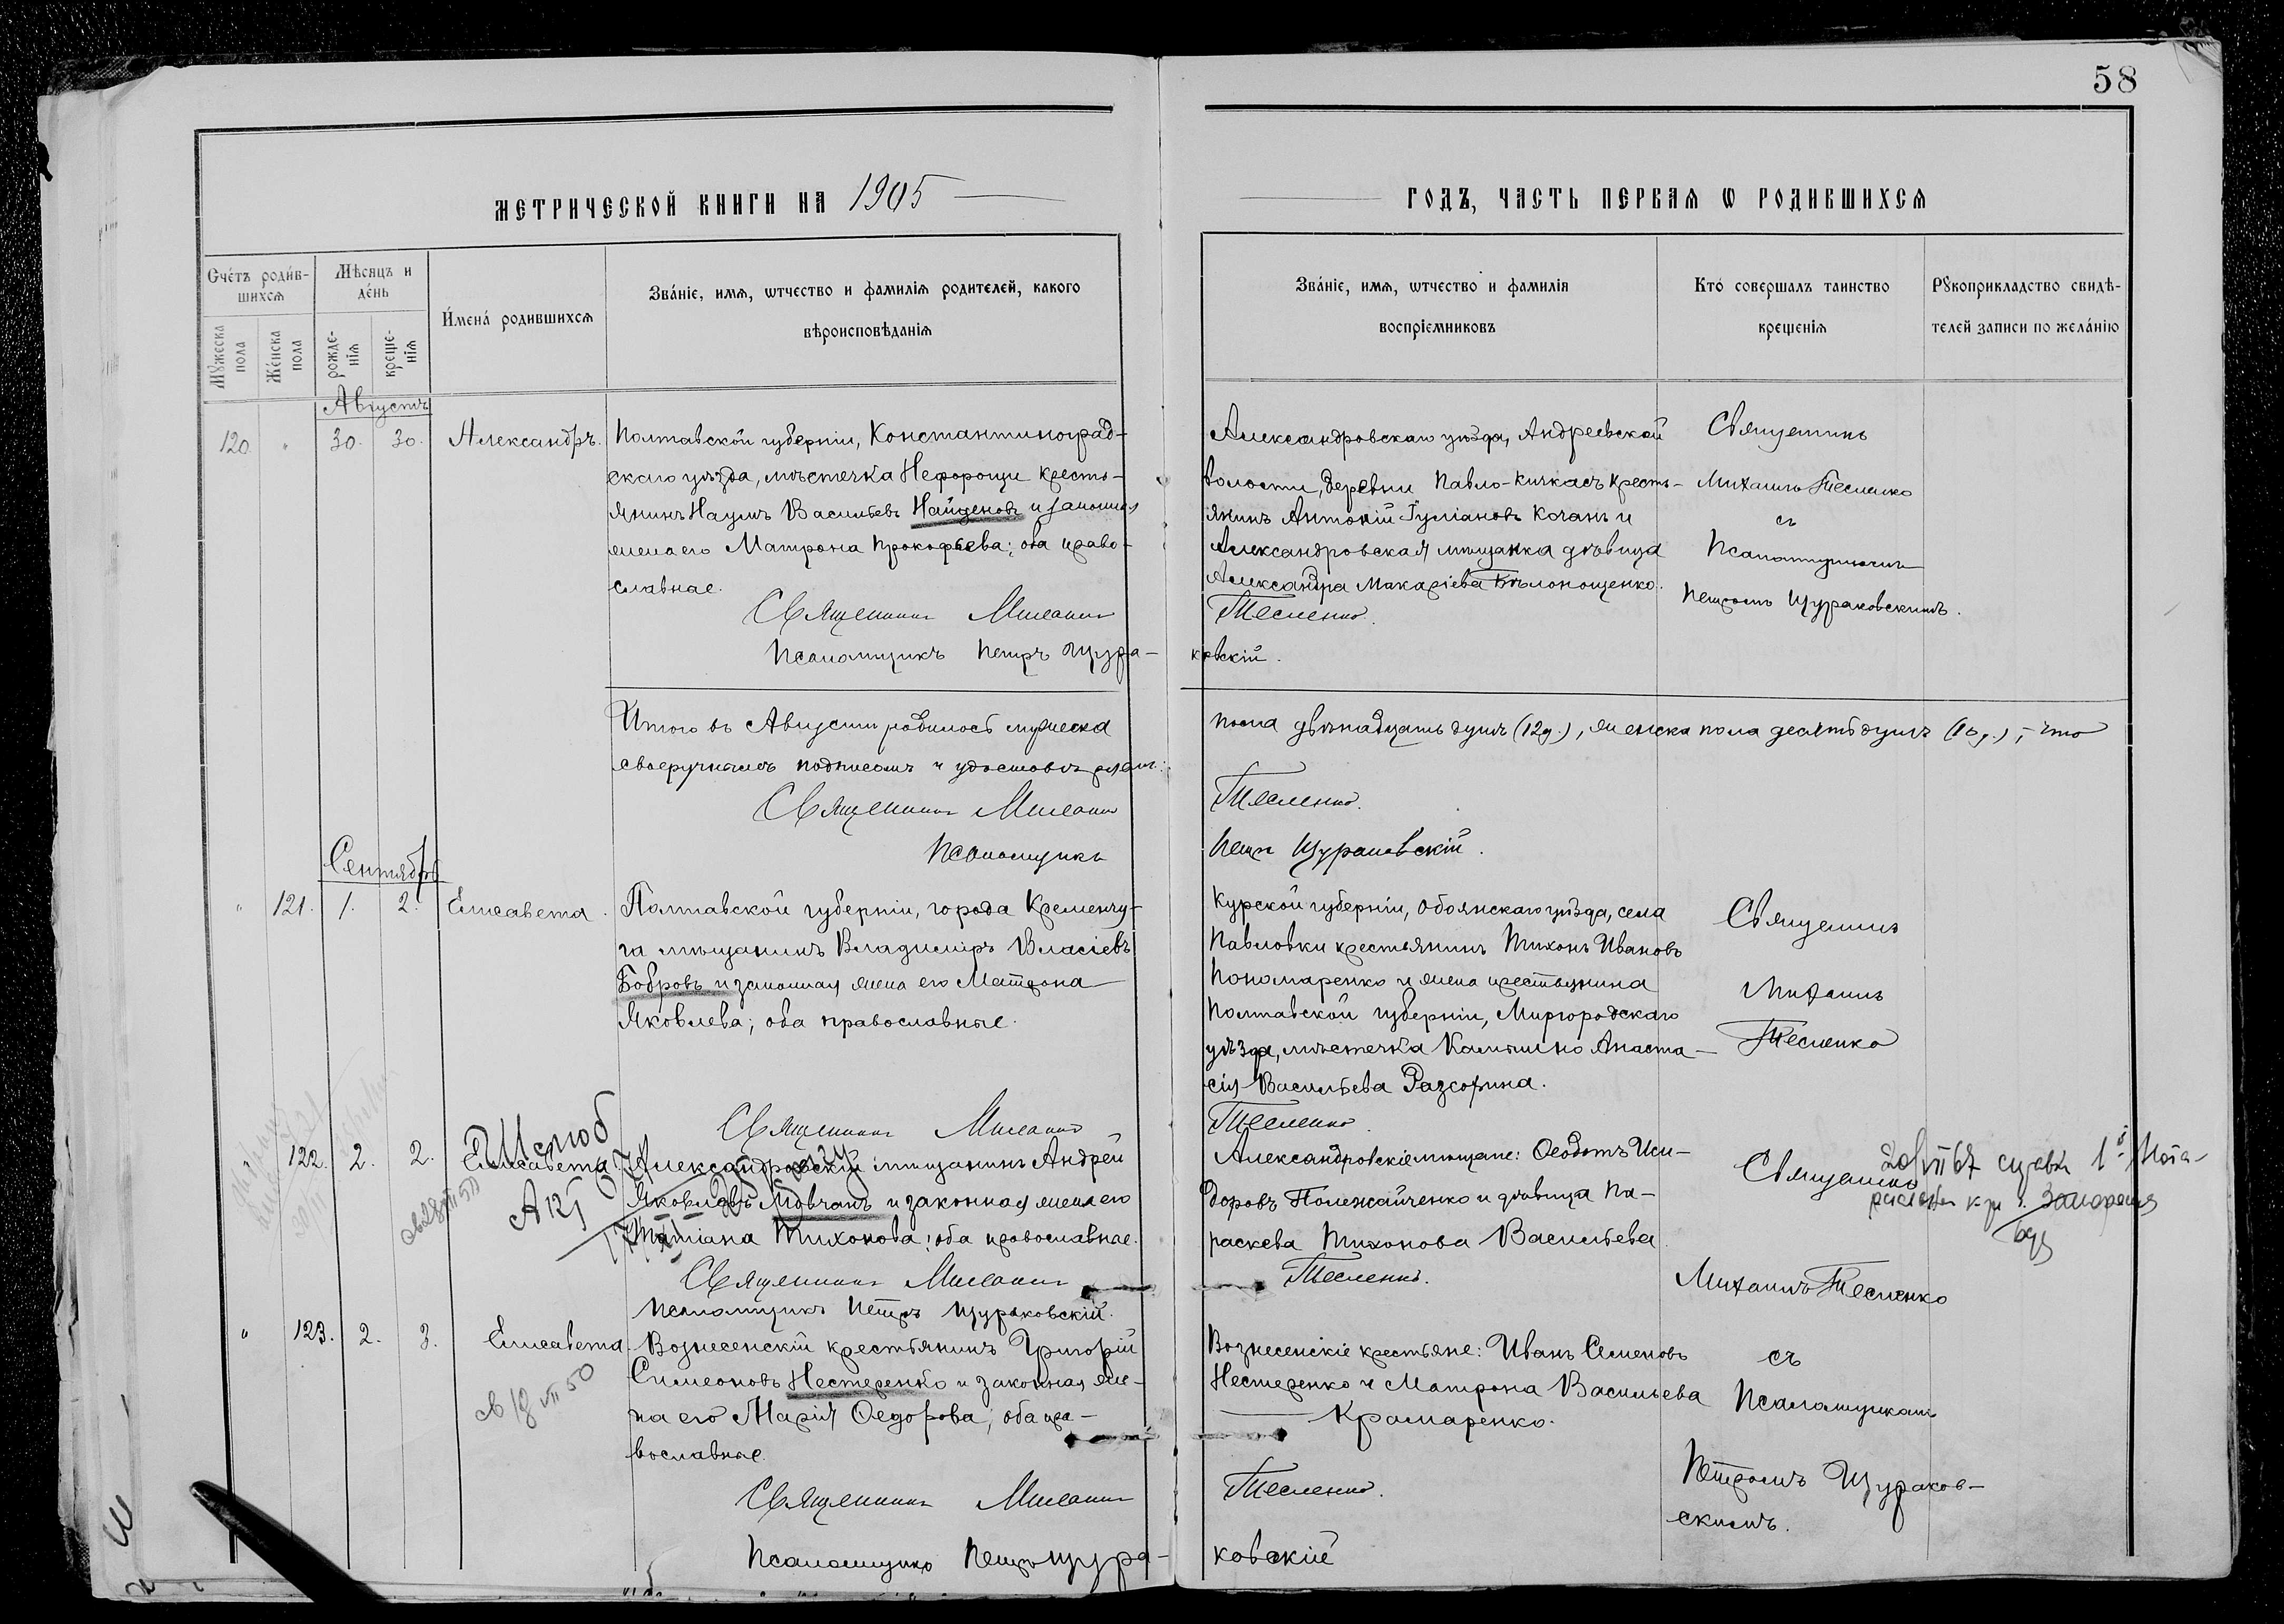 58
МЕТРИЧЕСКОЙ КНИГИ НА 1905
ГОДЪ, ЧАСТЬ ПЕРВАЯ Ѡ РОДИВШИХСЯ
Счетъ родив-
шихся
Мꙋжеска пола
Женска пола
Мѣсяцъ и
день
рожде-
нія
креще-
нія
Имена родившихся
Званіе, имя, ѡтчество и фамилія родителей, какого
вѣроисповѣданія
Званіе, имя, ѡтчество и фамилія
воспріемниковъ
Кто совершалъ таинство
крещенія
Рꙋкоприкладство свидѣ-
телей записи по желанію
Августъ
120. " 30. 30. Александръ.
Полтавской губерніи, Константиноград-
скаго уѣзда, мѣстечка Нефорощи кресть-
янинъ Наумъ Васильевъ Найденовъ и законная
жена его Матрона Прокофьева; оба право-
славные.
Священникъ Михаилъ
Псаломщикъ Петръ Щура-
Александровскаго уѣзда, Андреевской
волости, деревни Павло-Кичкасъ кресть-
янинъ Антоній Іуліановъ Коганъ и
Александровская мѣщанка дѣвица
Александра Макаріева Бѣлоношенко.
Тесленко.
ковскій.
Священникъ
Михаилъ Тесленко
съ
Псаломщикомъ
Петромъ Щураковскимъ.
Итого въ Августѣ родилось мужеска
своеручнымъ подписомъ и удостовѣряемъ:
Священникъ Михаилъ
Псаломщикъ
пола двѣнадцать душъ (12 д.), женска пола десять душъ (10 д.), - что
Тесленко.
Петръ Щураковскій.
Сентябрь
" 121. 1. 2. Елисавета.
Полтавской губерніи, города Кременчу-
га мѣщанинъ Владиміръ Власіевъ
Бобровъ и законная жена его Матрона
Яковлева; оба православные.
Священникъ Михаилъ
Курской губерніи, Обоянскаго уѣзда, села
Павловки крестьянинъ Тихонъ Ивановъ
Пономаренко и жена крестьянина
Полтавской губерніи, Миргородскаго
уѣзда, мѣстечка Камышно Анаста-
сія Васильева Разсохина.
Тесленко.
Священникъ
Михаилъ
Тесленко
122. 2. 2. Елисавета.
Александровскій мѣщанинъ Андрей
Яковлевъ Мовчанъ и законная жена его
Татіана Тихонова; оба православные.
Священникъ Михаилъ
Псаломщикъ Петръ Щураковскій.
Александровскіе мѣщане: Ѳеодотъ Иси-
доровъ Полежайченко и дѣвица Па-
раскева Тихонова Васильева.
Тесленко.
Священникъ
Михаилъ Тесленко
" 123. 2. 3. Елисавета.
Вознесенскій крестьянинъ Григорій
Симеоновъ Нестеренко и законная же-
на его Марія Ѳедорова; оба пра-
вославные.
Священникъ Михаилъ
Псаломщикъ Петръ Щура-
Вознесенскіе крестьяне: Иванъ Семеновъ
Нестеренко и Матрона Васильева
Крамаренко.
Тесленко.
ковскій
съ
Псаломщикомъ
Петромъ Щураков-
скимъ.